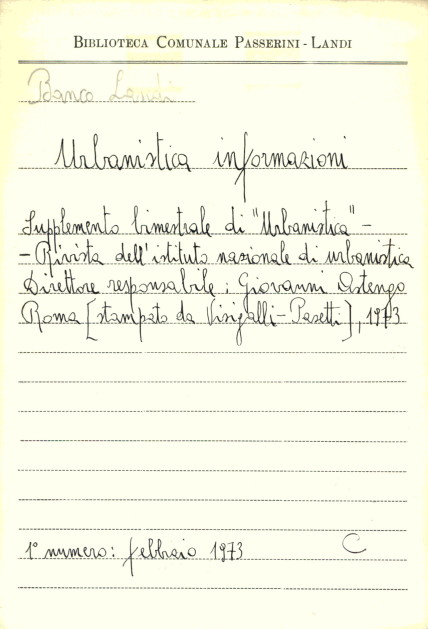 BIBLIOTECA COMUNALE PASSERINI - LANDI
Banco Landi
Urbanistica informazioni
Supplemento bimestrale di "Urbanistica" -
- Rivista dell'istituto nazionale di urbanistica
Direttore responsabile: Giovanni Astengo
Roma [stampato da Visigalli-Pasetti], 1973
1° numero: febbraio 1973
C